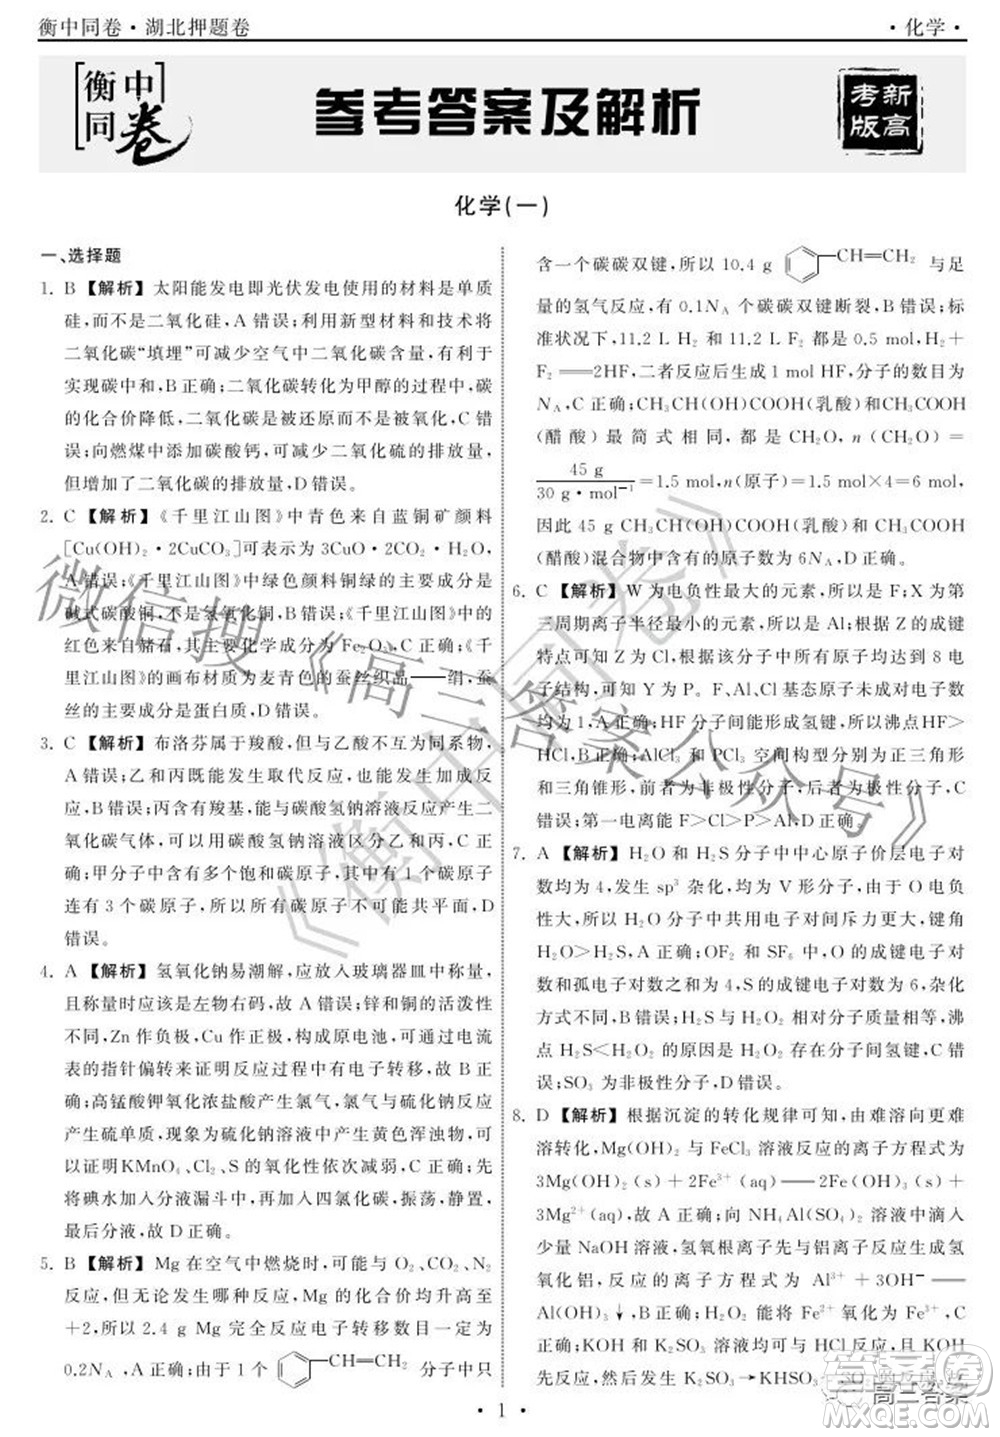 衡中同卷·湖北押题卷
·化学·
衡中同卷
参考答案及解析
新高考版
化学(一)
一、选择题
1. B 【解析】太阳能发电即光伏发电使用的材料是单质
硅,而不是二氧化硅,A 错误;利用新型材料和技术将
二氧化碳“填埋”可减少空气中二氧化碳含量,有利于
实现碳中和,B 正确;二氧化碳转化为甲醇的过程中,碳
的化合价降低,二氧化碳是被还原而不是氧化,C 错
误;向燃煤中加入碳酸钙,可减少二氧化硫的排放量,
但增加了二氧化碳的排放量,D 错误。
2. C 【解析】《千里江山图》中青色来自蓝铜矿颜料
[Cu(OH)₂·2CuCO₃]可表示为 3CuO·2CO₂·H₂O,
A 错误;《千里江山图》中绿色颜料铜绿的主要成分是
碱式碳酸铜,不是氢氧化铜,B 错误;《千里江山图》中的
红色来自赭石,其主要化学成分为 Fe₂O₃,C 正确;《千
里江山图》的画布材质为麦青色的蚕丝织品——绢,蚕
丝的主要成分是蛋白质,D 错误。
3. C 【解析】布洛芬属于羧酸,但与乙酸不互为同系物,
A 错误;乙和丙都能发生取代反应,但不能发生加成反
应,B 错误;丙含有羧基,能与碳酸氢钠溶液反应产生二
氧化碳气体,可以用碳酸氢钠溶液区分乙和丙,C 正
确;甲分子中含有多个饱和碳原子,其中有 1 个碳原子
连有 3 个碳原子,所以碳原子不可能共平面,D
错误。
4. A 【解析】氢氧化钠易潮解,应放入玻璃器皿中称量,
且称量时应该是左物右码,故 A 错误;锌和铜的活泼性
不同,Zn 作负极,Cu 作正极,构成原电池,可通过电流
表的指针偏转来证明反应过程中有电子转移,故 B 正
确;高锰酸钾氧化浓盐酸产生氯气,氯气与硫化钠反应
生成硫单质,现象为硫化钠溶液中产生黄色浑浊,可
证明 KMnO₄、Cl₂、S 的氧化性依次减弱,故 C 正确;
将碘水加入分液漏斗中,再加入四氯化碳,振荡,静置,
最后分液,故 D 正确。
5. B 【解析】Mg 在空气中燃烧时,可能与 O₂、CO₂、N₂
反应,但无论发生哪种反应,Mg 的化合价均升高至
+2,所以 2.4 g Mg 完全反应电子转移数目一定为
0.2Nₐ,A 正确;由于 1 个 CH=CH₂ 分子中只
含一个碳碳双键,所以 10.4 g CH=CH₂ 与足
量的氢气反应,有 0.1Nₐ 个碳碳双键断裂,B 错误;标
准状况下,11.2 L H₂ 和 11.2 L F₂ 都是 0.5 mol,H₂+
F₂ ══2HF,二者反应后生成 1 mol HF,分子的数目为
Nₐ,C 正确;CH₃CH(OH)COOH(乳酸)和 CH₃COOH
(醋酸)最简式相同,都是 CH₂O,n(CH₂O)=
45 g / 30 g·mol⁻¹ =1.5 mol,n(原子)=1.5 mol×4=6 mol,
因此 45 g CH₃CH(OH)COOH(乳酸)和 CH₃COOH
(醋酸)混合物中含有的原子数为 6Nₐ,D 正确。
6. C 【解析】W 为电负性最大的元素,所以是 F;X 为第
三周期离子半径最小的元素,所以是 Al;根据 Z 的成键
特点可知 Z 为 Cl,根据该分子中所有原子均为 8 电
子结构,可知 Y 为 P。Al、Cl 基态原子未成对电子数
均为 1,A 正确;HF 分子间能形成氢键,所以沸点 HF>
HCl,B 正确;AlCl₃ 和 PCl₃ 空间构型分别为正三角形
和三角锥形,前者为非极性分子,后者为极性分子,C
错误;第一电离能 F>Cl>P>Al,D 正确。
7. A 【解析】H₂O 和 H₂S 分子中中心原子价层电子对
数均为 4,发生 sp³ 杂化,均为 V 形分子,由于 O 电负
性大,所以 H₂O 分子中共用电子对间斥力更大,键角
H₂O>H₂S,A 正确;SO₂ 和 SF₆ 分子中的成键电子对
数和孤电子对数之和为 3 和 6,杂化
方式不同,B 错误;H₂S 与 H₂O₂ 相对分子质量相等,沸
点 H₂S<H₂O₂ 的原因是 H₂O₂ 存在分子间氢键,C
正误;SO₃ 为非极性分子,D 错误。
8. D 【解析】根据沉淀的转化规律可知,由难溶向更难
溶转化,Mg(OH)₂ 与 FeCl₃ 溶液反应的离子方程式为
3Mg(OH)₂(s)+2Fe³⁺(aq) ══ 2Fe(OH)₃(s)+
3Mg²⁺(aq),故 A 正确;向 NH₄Al(SO₄)₂ 溶液中滴入
少量 NaOH 溶液,氢氧根离子先与铝离子反应生成氢
氧化铝,反应的离子方程式为 Al³⁺+3OH⁻ ══
Al(OH)₃↓,故 B 正确;H₂O₂ 能将 Fe²⁺ 氧化为 Fe³⁺,C
正确;KOH 和 K₂SO₃ 溶液均可与 HCl 反应,KOH 先反
应,然后发生 K₂SO₃→KHSO₃→
·1·
微信搜《高三答案公众号》
《衡中同卷》
答案圈
MXQE.COM
高三答案